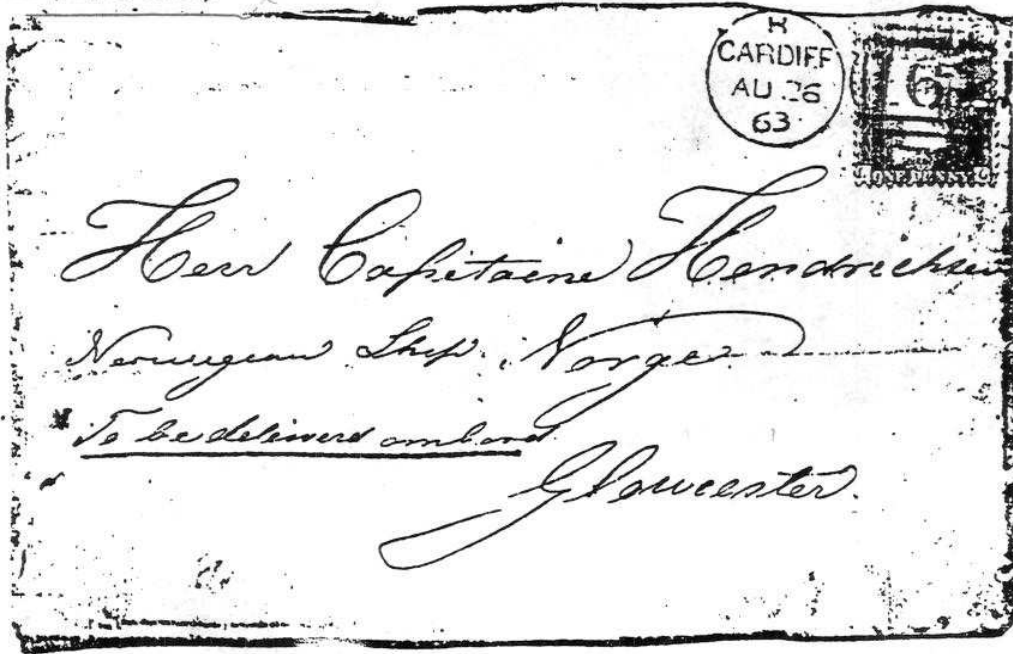 H
CARDIFF
AU 26
63
162
ONE PENNY
Herr Capitaine Hendrichsen
Norwegean Ship. Norge
To be deliverd ombord
Gloucester.